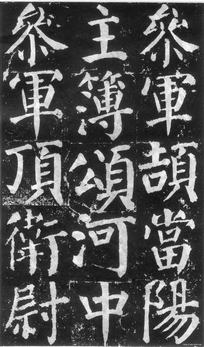 參軍頡當陽
主簿頌河中
參軍頂衛尉